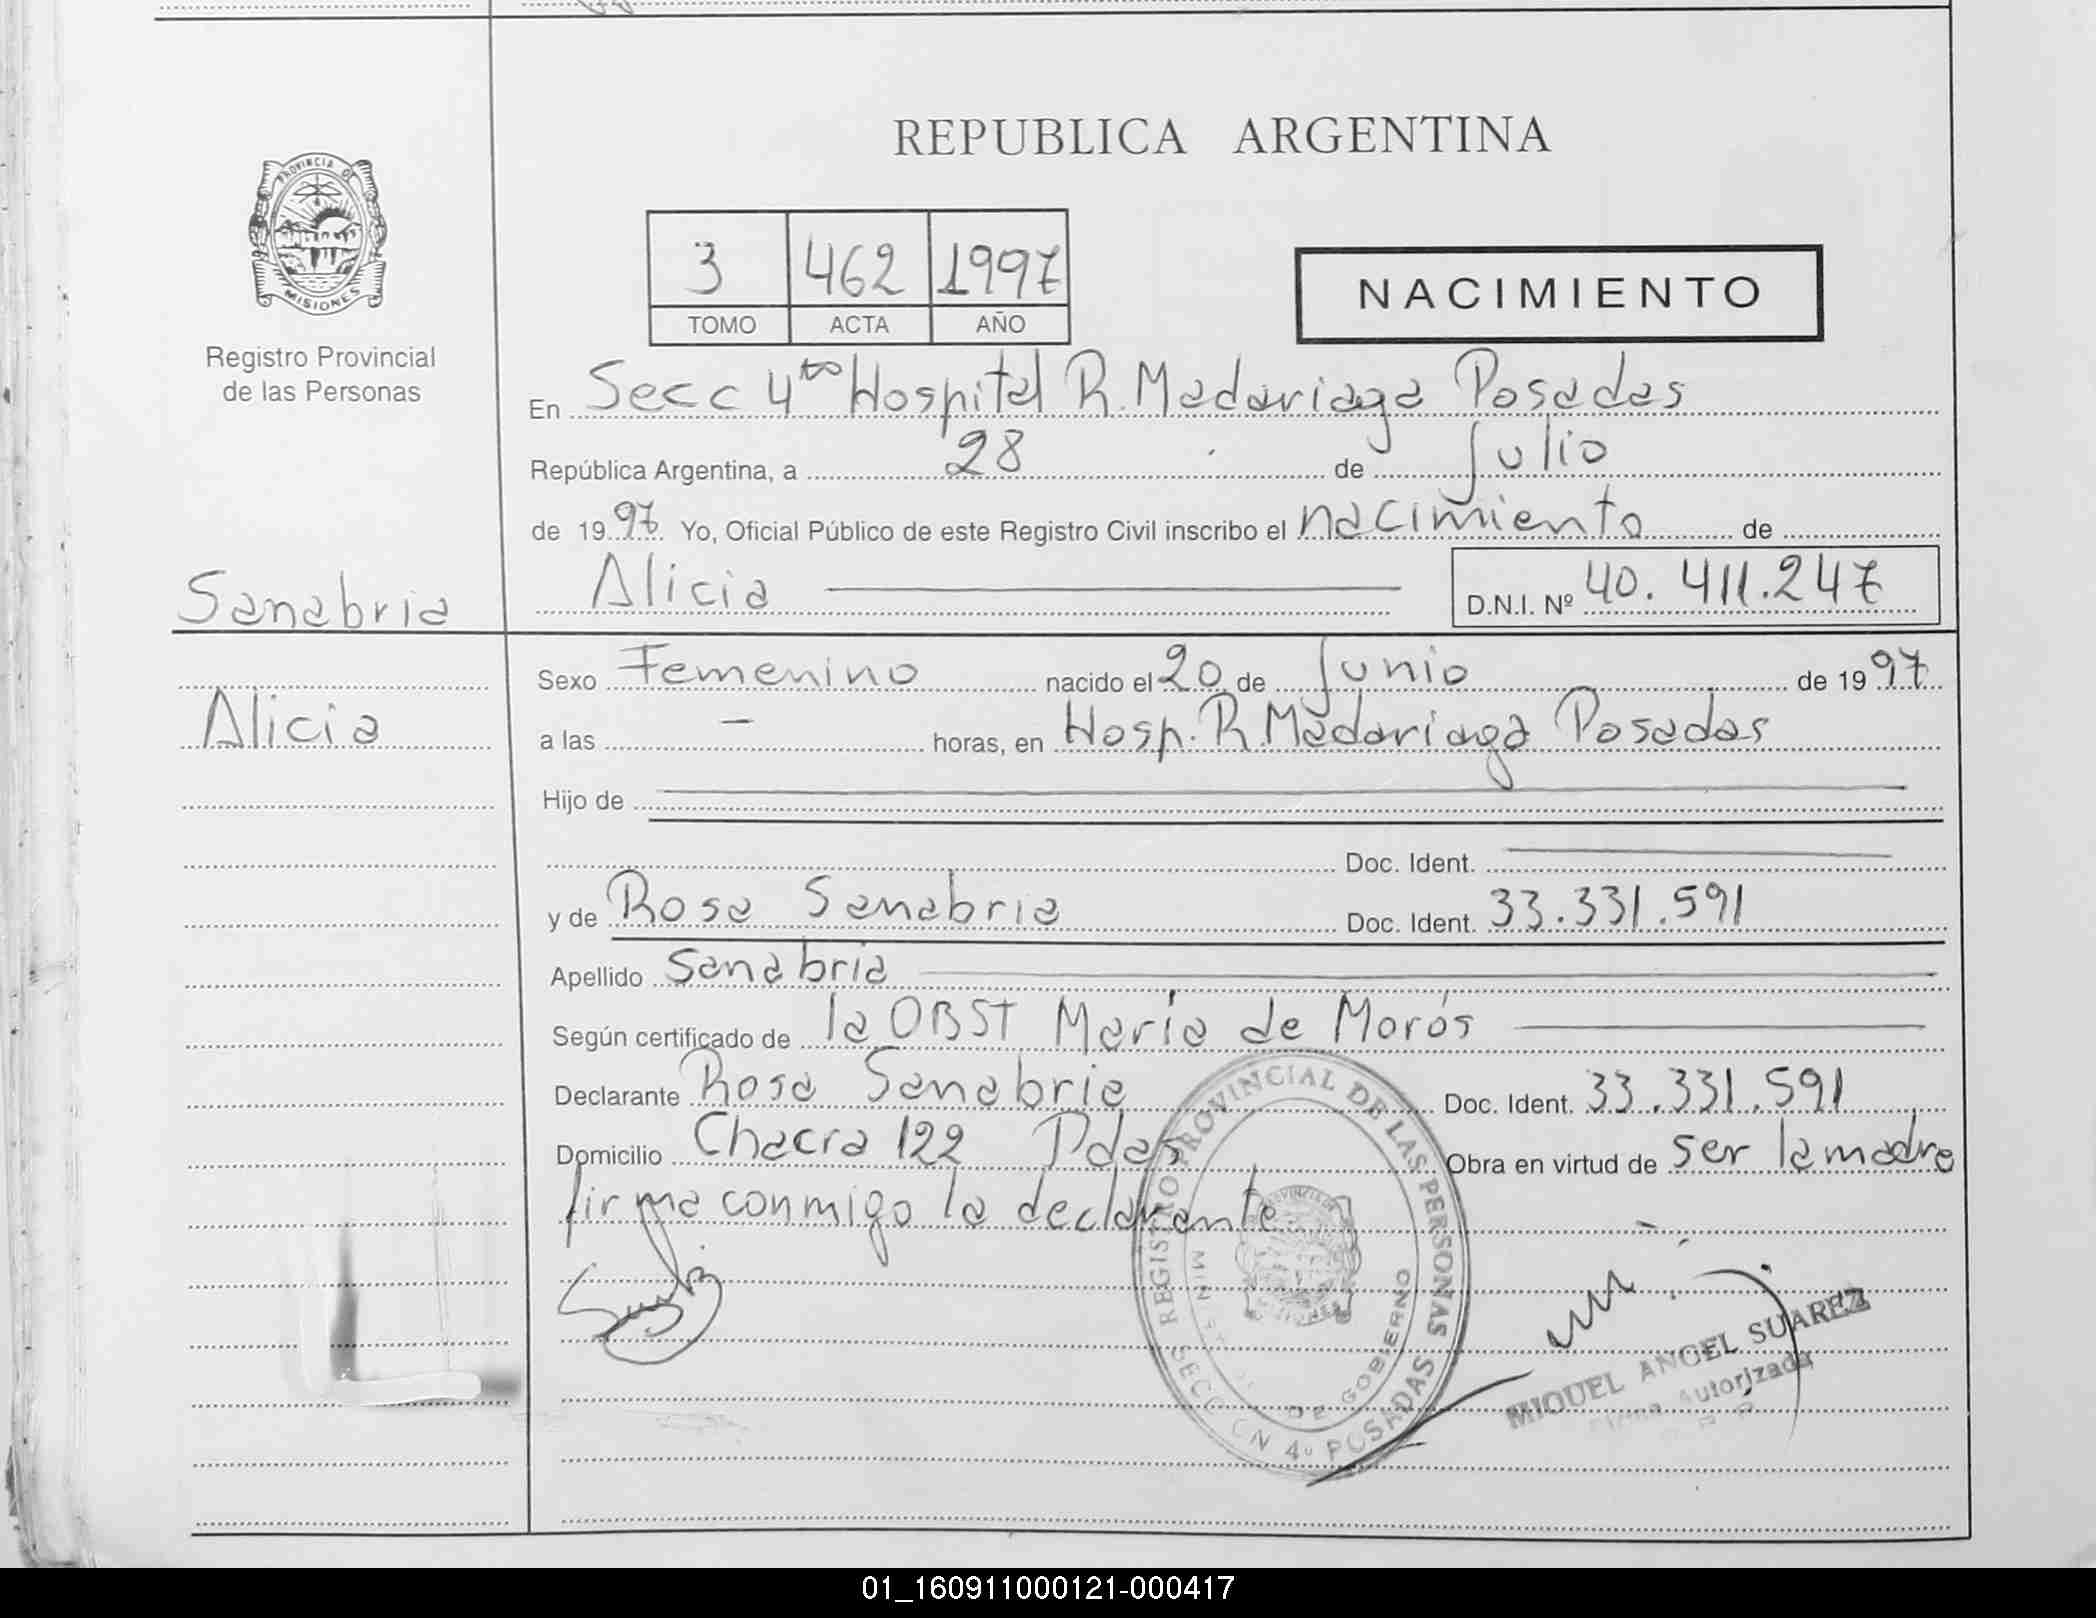 REPUBLICA ARGENTINA
PROVINCIA D
MISIONES
Registro Provincial
de las Personas
3 462 1997
TOMO ACTA AÑO
NACIMIENTO
En Secc 4to Hospital R. Madariaga Posadas
República Argentina, a 28 de Julio
de 1997 Yo, Oficial Público de este Registro Civil inscribo el nacimiento de
Alicia D.N.I. Nº 40.411.247
Sanabria
Alicia
Sexo Femenino nacido el 20 de Junio de 1997
a las – horas, en Hosp. R. Madariaga Posadas
Hijo de
Doc. Ident.
y de Rosa Sanabria Doc. Ident. 33.331.591
Apellido Sanabria
Según certificado de la OBST María de Morós
Declarante Rosa Sanabria Doc. Ident. 33.331.591
Domicilio Chacra 122 Pdas Obra en virtud de ser la madre
firma conmigo la declarante
REGISTRO PROVINCIAL DE LAS PERSONAS
DE GOBIERNO
SECCION 4º POSADAS
MIGUEL ANGEL SUAREZ
Firma Autorizada
01_160911000121-000417